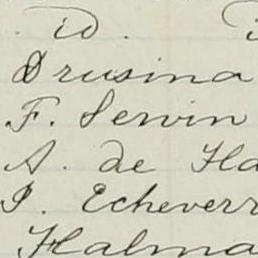 id.
Drusina
F. Servin
A. de Ha
J. Echeverr
Halma